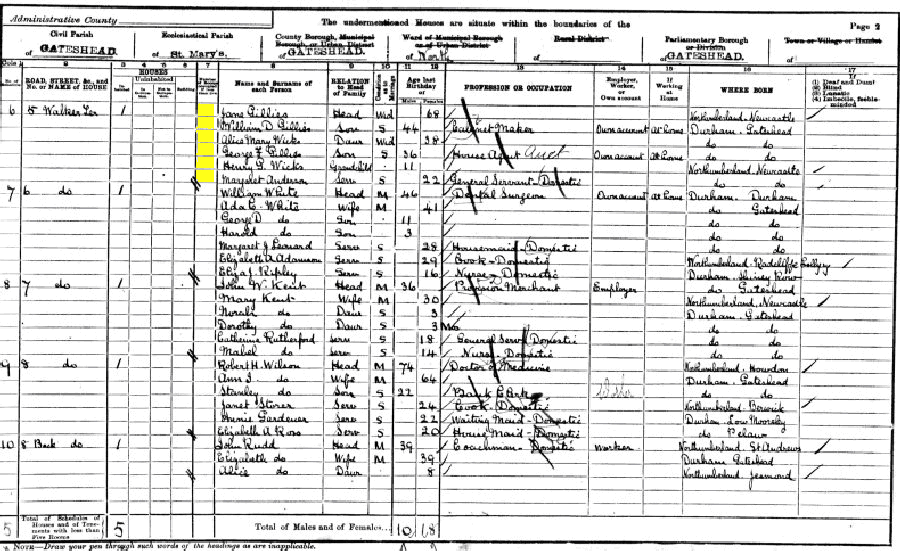 Administrative County
The undermentioned Houses are situate within the boundaries of the
Page 2
Civil Parish of GATESHEAD.
Ecclesiastical Parish of St. Mary's.
County Borough, Municipal Borough, or Urban District of GATESHEAD.
Ward of Municipal Borough or of Urban District of North
Rural District
Parliamentary Borough or Division of GATESHEAD.
Town or Village or Hamlet
ROAD, STREET, &c., and No. or NAME of HOUSE
HOUSES
Uninhabited
Name and Surname of each Person
RELATION to Head of Family
Age last Birthday of
Males Females
PROFESSION OR OCCUPATION
Employer, Worker, or Own account
If Working at Home
WHERE BORN
If (1) Deaf and Dumb (2) Blind (3) Lunatic (4) Imbecile, feeble-minded
6 5 Walker Ter 1 Jane Gillies Head Wid 68 Northumberland - Newcastle
William D Gillies Son S 44 Cabinet Maker Own account At home Durham - Gateshead
Alice Mary Wicks Daur Wid 38 do do
George F Gillies Son S 36 House Agent Auct Own account At home do do
Henry G Wicks Grandchild 11 Northumberland - Newcastle
Margaret Anderson Serv S 22 General Servant - Domestic do do
7 6 do 1 William White Head M 46 Dental Surgeon Own account At home Durham - Durham
Ada E. White Wife M 41 do Gateshead
George D do Son 11 do do
Harold do Son 3 do do
Margaret J Leonard Serv S 28 Housemaid - Domestic do do
Elizabeth A Adamson Serv S 29 Cook - Domestic Northumberland - Radcliffe
Eliza J. Ripley Serv S 16 Nurse - Domestic Durham
8 7 do 1 John W. Kent Head M 36 Provision Merchant Employer do Gateshead
Mary Kent Wife M 30 Northumberland, Newcastle
do Daur S 3 Durham - Gateshead
Dorothy do Daur S 3 Mo do do
Catherine Rutherford Serv S 18 General Serv - Domestic do do
Mabel do Serv S 14 Nurse - Domestic do do
9 8 do 1 Robert H. Wilson Head M 74 Doctor of Medicine Northumberland - Howdon
Ann S. do Wife M 64 Durham - Gateshead
Stanley do Son S 22 Bank Clerk do do
Janet Storer Serv S 24 Cook - Domestic Northumberland - Berwick
Annie Gardener Serv S 22 Waiting Maid - Domestic Durham Low Moorsley
Elizabeth A Ross Serv S 20 House Maid - Domestic do Pelaw
10 8 Back do 1 John Rudd Head M 39 Coachman - Domestic Worker Northumberland - St Andrews
Elizabeth do Wife M 39 Durham Gateshead
Alice do Daur 8 Northumberland Jesmond
5 Total of Schedules of Houses and of Tenements with less than Five Rooms 5 Total of Males and of Females... 10 18
NOTE—Draw your pen through such words of the headings as are inapplicable.